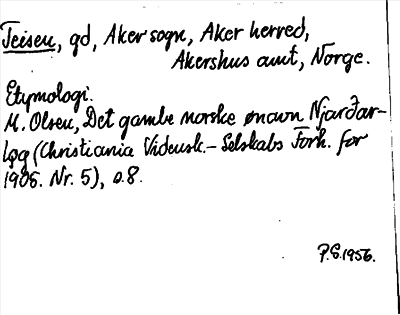 Teisen, gd, Aker sogn, Aker herred,
Akershus amt, Norge.
Etymologi.
M. Olsen, Det gamle norske ønavn Njarðar-
lǫg (Christiania Vidensk.-Selskabs Forh. for
1905. Nr. 5), s.8.
P.S.1956.